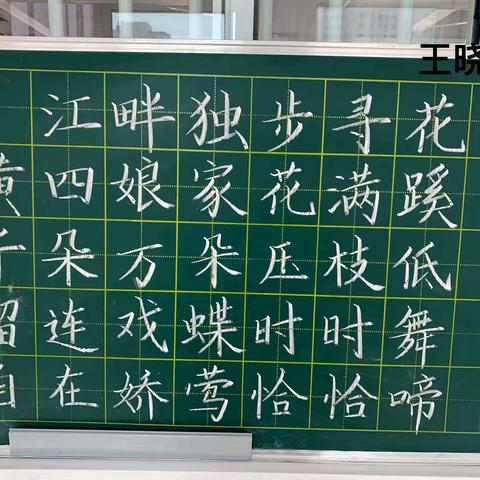 王晓
江畔独步寻花
黄四娘家花满蹊
千朵万朵压枝低
留连戏蝶时时舞
自在娇莺恰恰啼